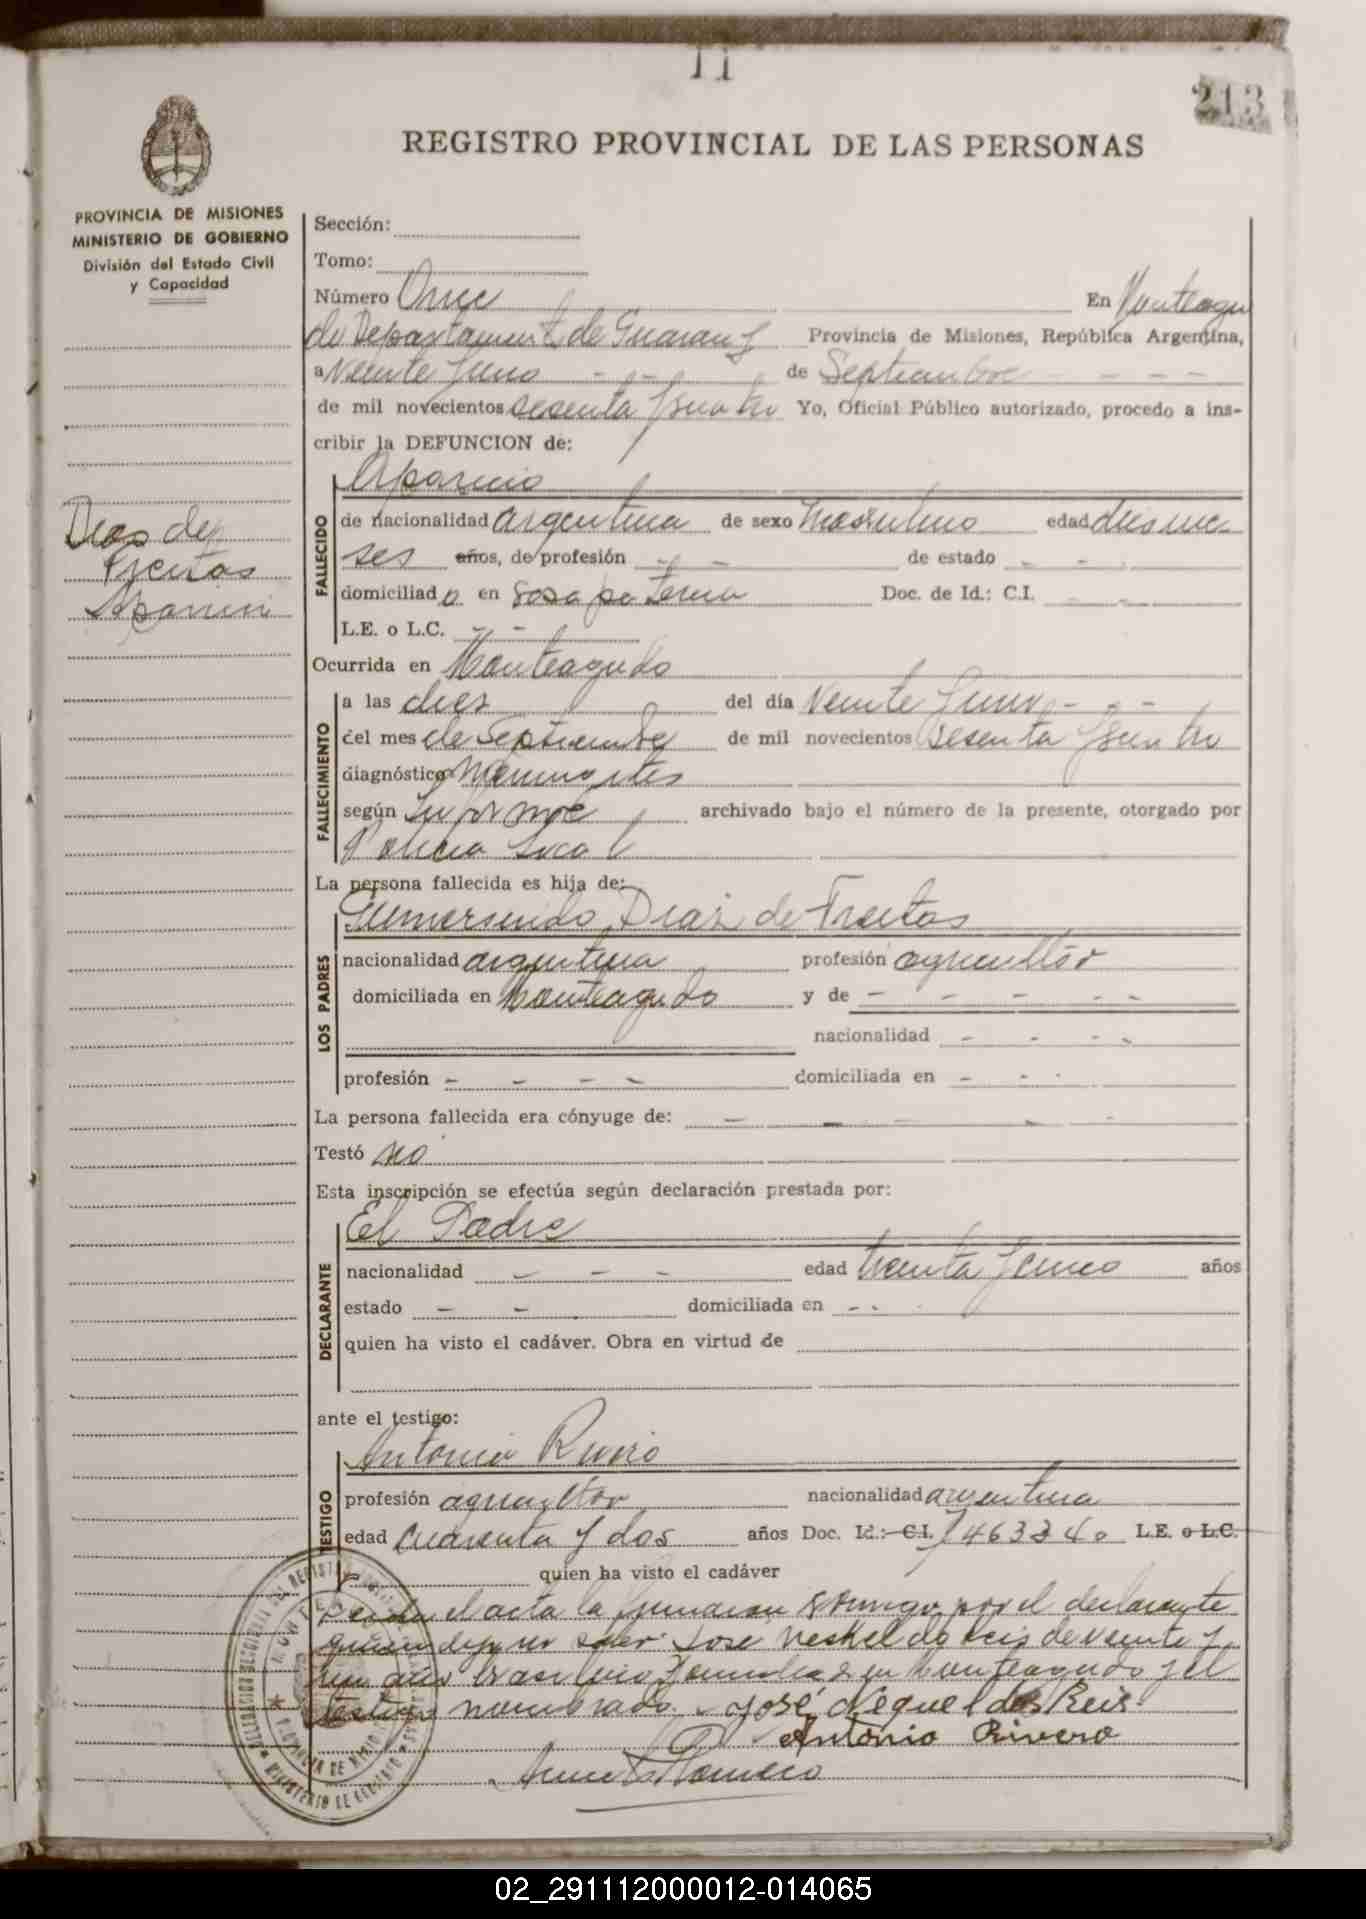 11
213
REGISTRO PROVINCIAL DE LAS PERSONAS
PROVINCIA DE MISIONES
MINISTERIO DE GOBIERNO
División del Estado Civil
y Capacidad
Dias de
Freitas
Aparicio
Sección:
Tomo:
Número Once En Monteagu
do Departament de Guarany Provincia de Misiones, República Argentina,
a Veinte y uno - - de Septiembre - - -
de mil novecientos sesenta y cuatro Yo, Oficial Público autorizado, procedo a ins-
cribir la DEFUNCION de:
FALLECIDO
Aparicio
de nacionalidad argentina de sexo masculino edad dies me-
ses años, de profesión - - de estado - -
domiciliado en casa paterna Doc. de Id.: C.I. - -
L.E. o L.C. - -
Ocurrida en Monteagudo
FALLECIMIENTO
a las dies del día Veinte y uno - -
del mes de Septiembre de mil novecientos sesenta y cuatro
diagnóstico Meningites
según Informe archivado bajo el número de la presente, otorgado por
Policia Local
La persona fallecida es hija de:
LOS PADRES
Gumersindo Diaz de Freitas
nacionalidad argentina profesión agricultor
domiciliada en Monteagudo y de - - - - -
nacionalidad - - - -
profesión - - - - domiciliada en - - -
La persona fallecida era cónyuge de: - - - -
Testó no
Esta inscripción se efectúa según declaración prestada por:
DECLARANTE
El Padre
nacionalidad - - - edad treinta y cinco años
estado - - domiciliada en - -
quien ha visto el cadáver. Obra en virtud de
ante el testigo:
TESTIGO
Antonio Rivero
profesión agricultor nacionalidad argentina
edad cuarenta y dos años Doc. Id.: C.I. 7463340 L.E. o L.C.
quien ha visto el cadáver
el acta la firman por el declarante
quien dijo ser José dos Reis de veinte y
un año brasilero domiciliado en Monteagudo y el
testigo nombrado. José Neguel dos Reis
Antonio Rivero
02_291112000012-014065